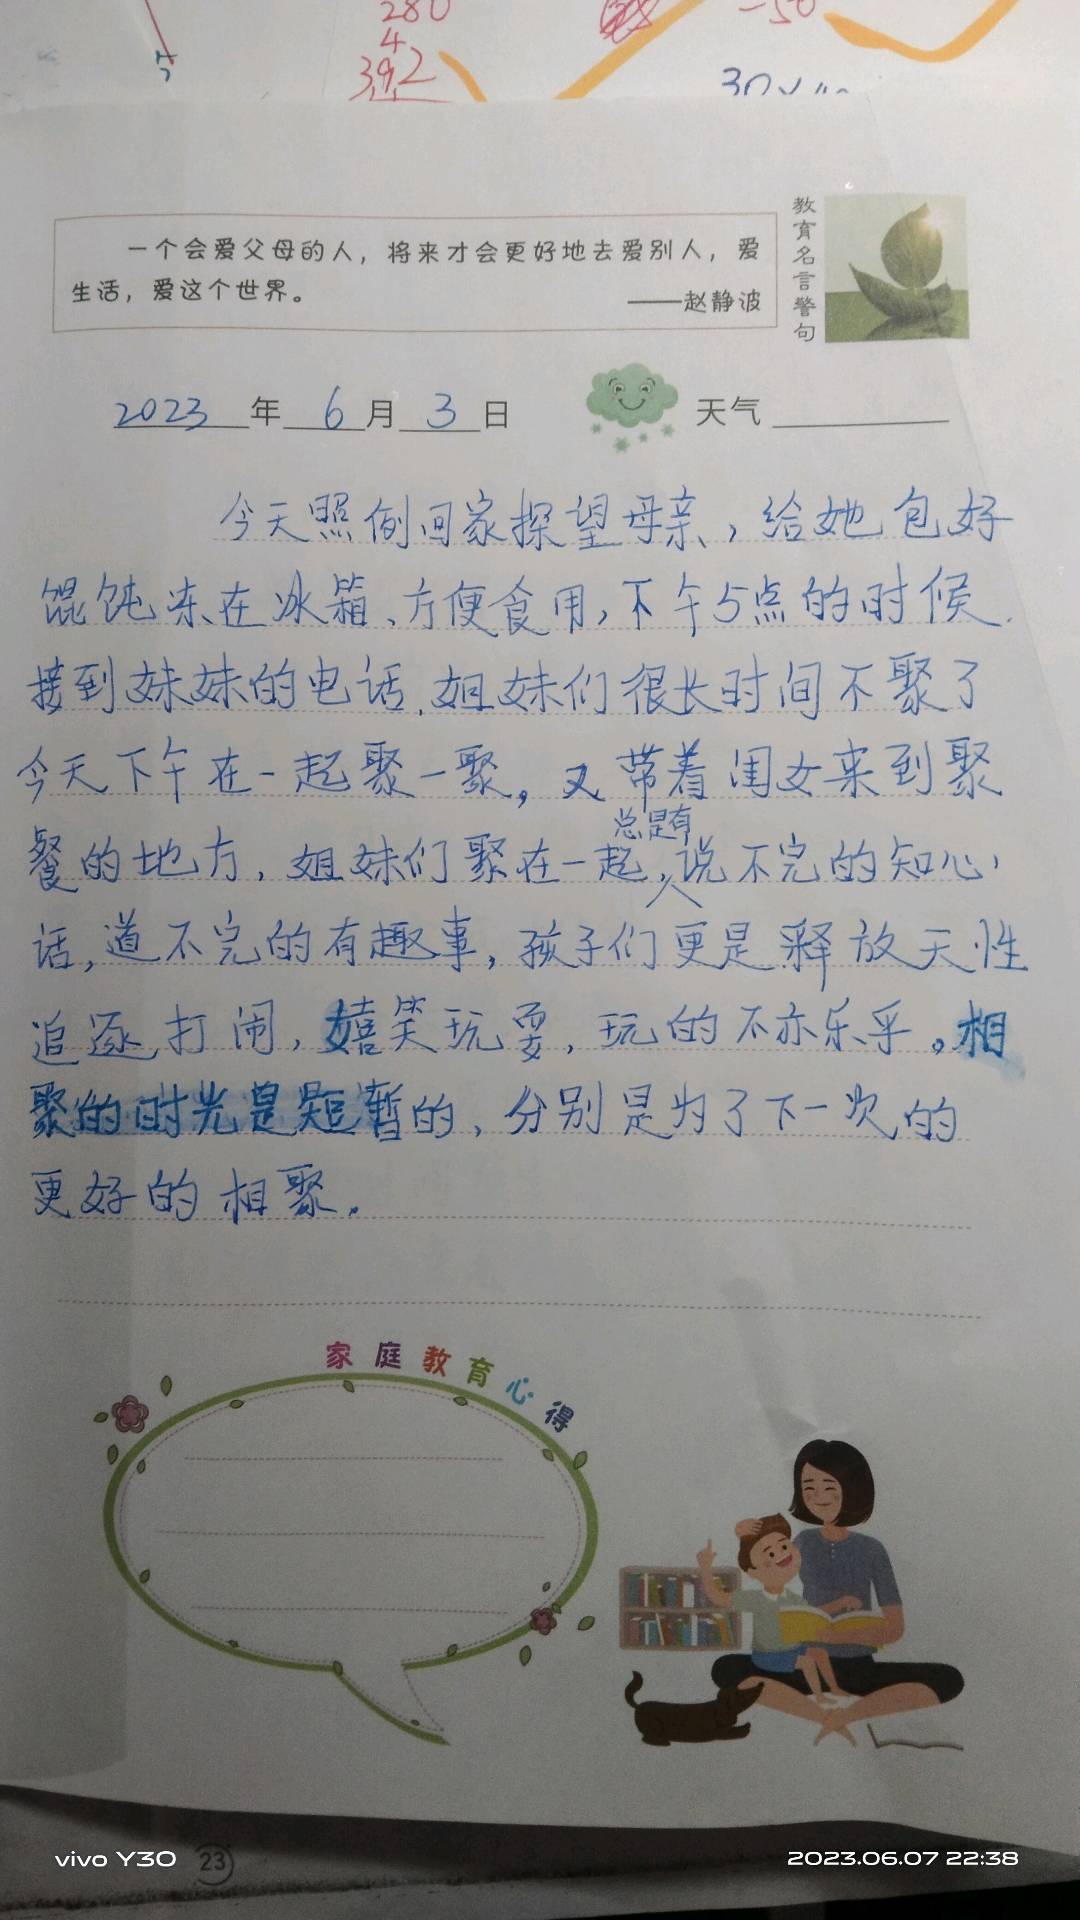 280
4
392
-50
一个会爱父母的人，将来才会更好地去爱别人，爱
生活，爱这个世界。
——赵静波
教育名言警句
2023年6月3日 天气
今天照例回家探望母亲，给她包好
馄饨冻在冰箱、方便食用，下午5点的时候.
接到妹妹的电话.姐妹们很长时间不聚了
今天下午在一起聚一聚。又带着闺女来到聚
总是有
餐的地方，姐妹们聚在一起，说不完的知心
话，道不完的有趣事，孩子们更是释放天性
追逐打闹，嬉笑玩耍，玩的不亦乐乎。相
聚的时光是短暂的，分别是为了下一次的
更好的相聚。
家庭教育心得
vivo Y30
23
2023.06.07 22:38